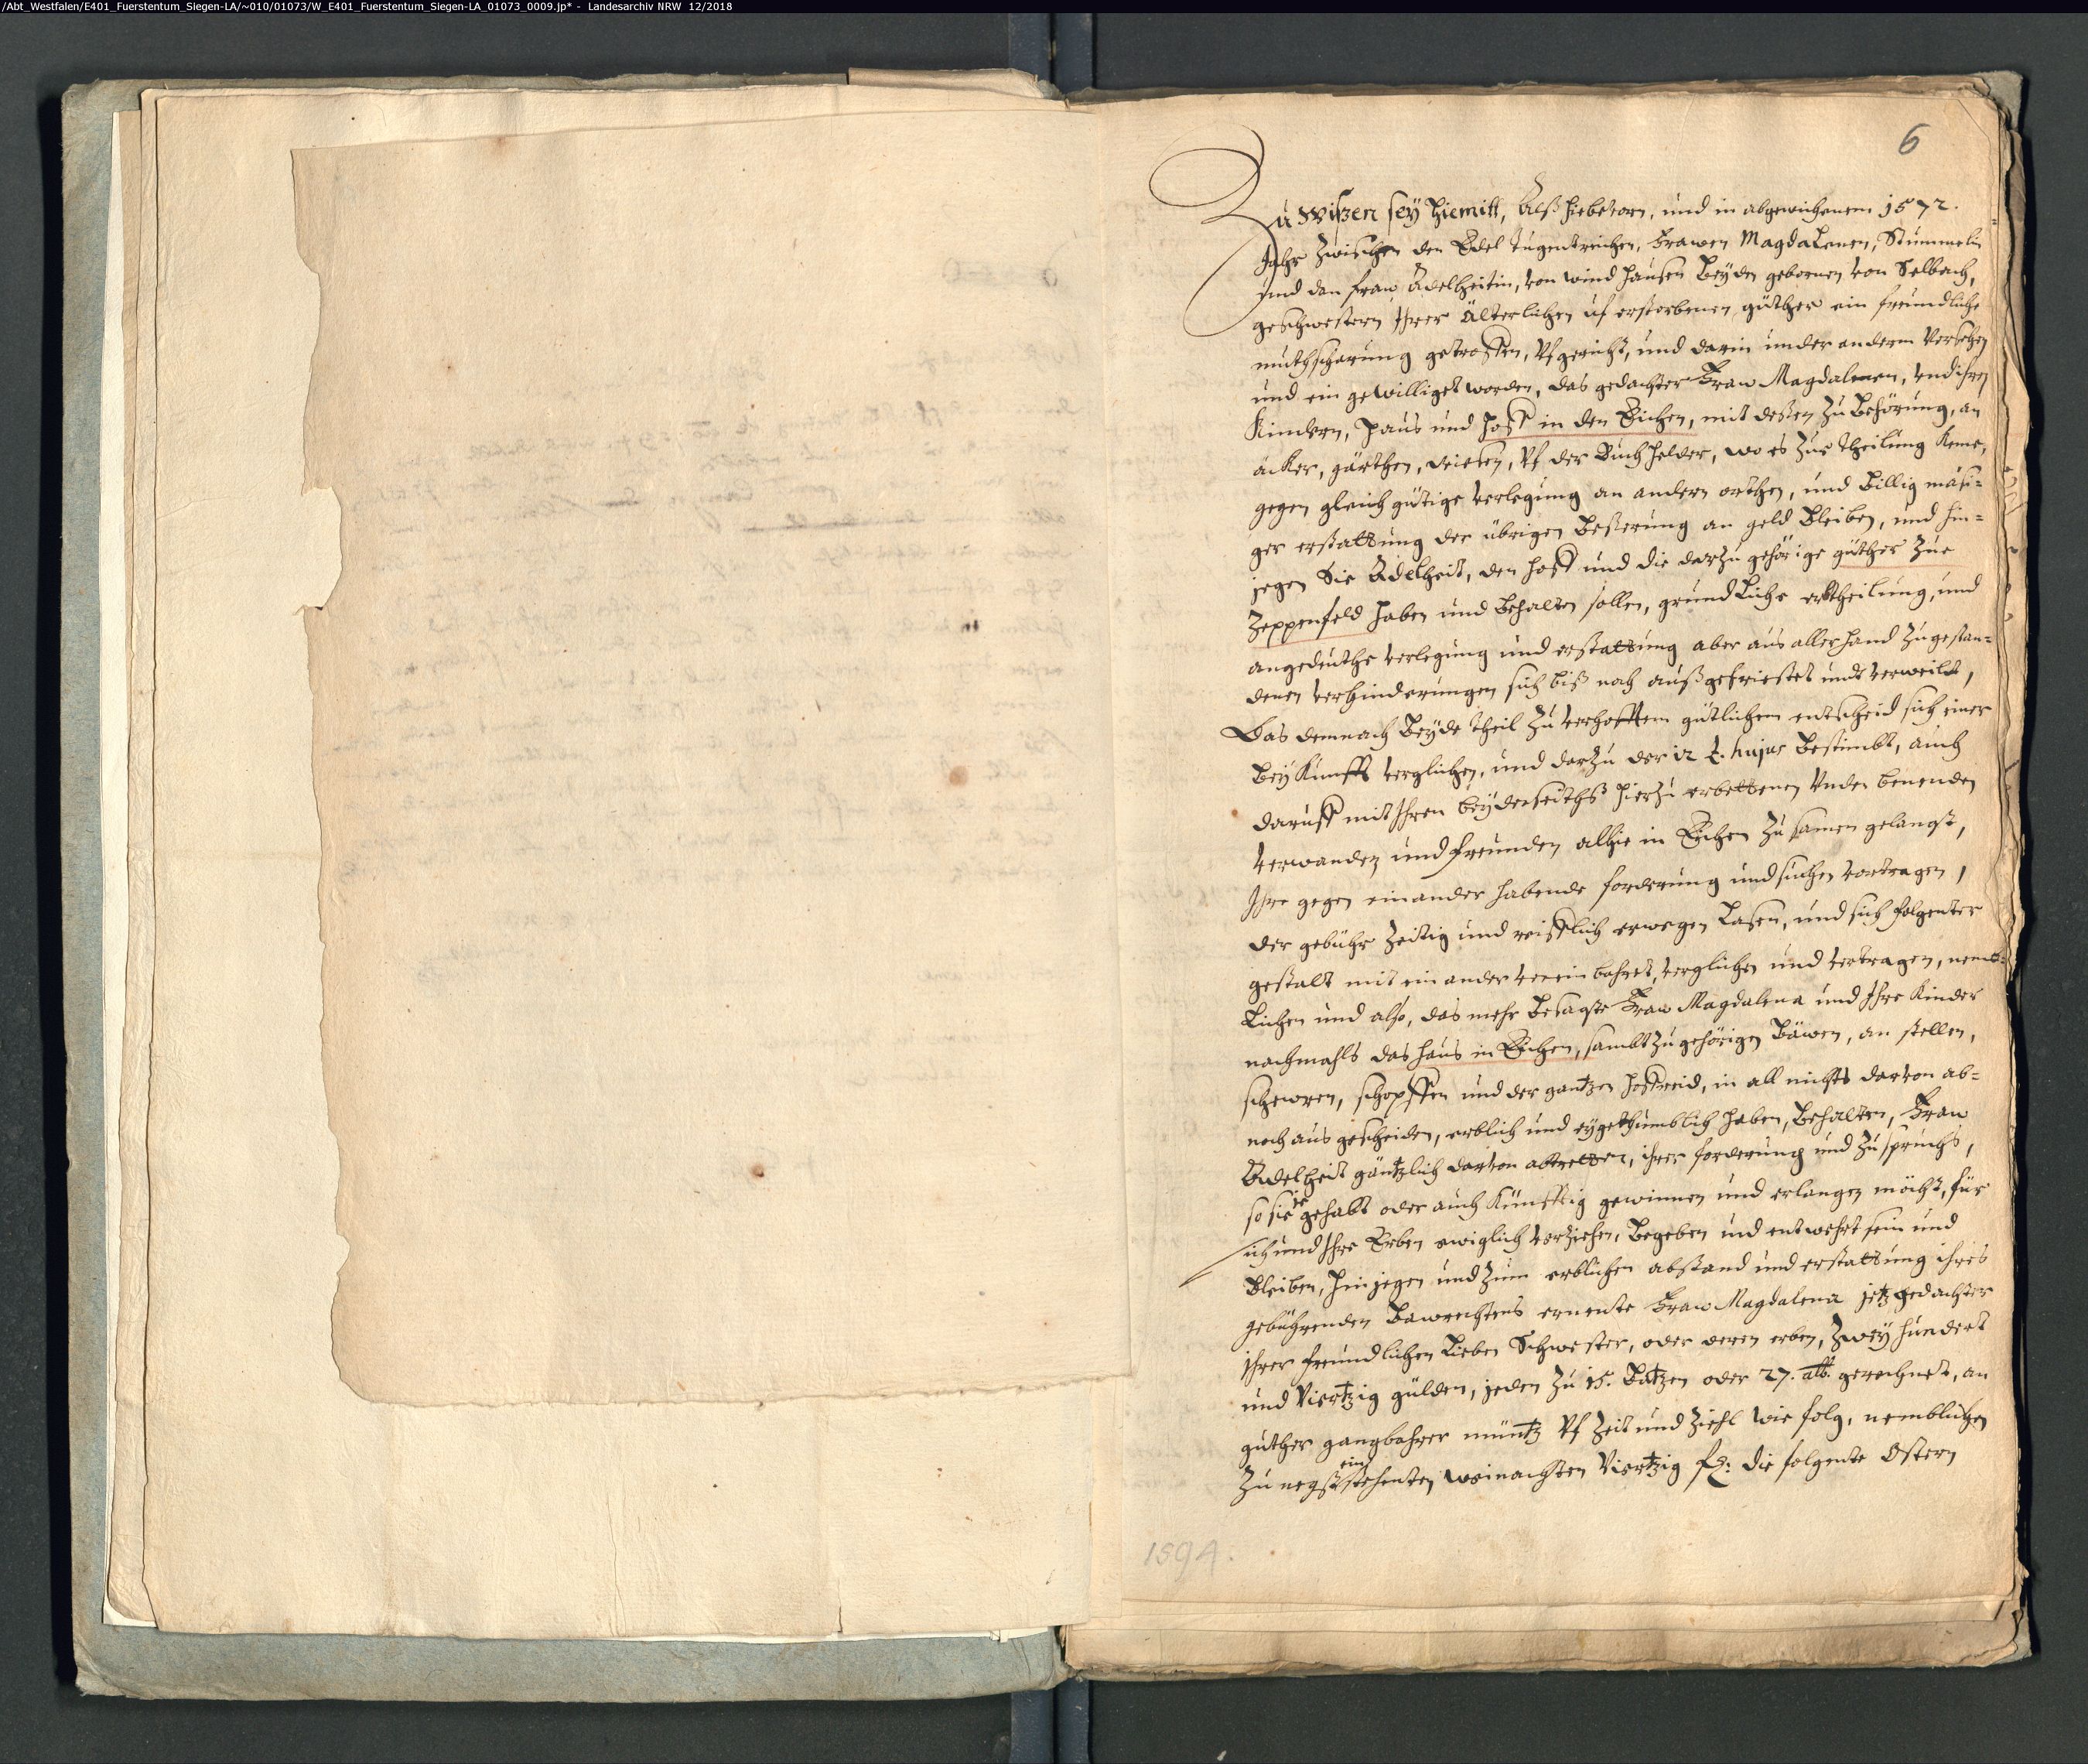 /Abt_Westfalen/E401_Fuerstentum_Siegen-LA/~010/01073/W_E401_Fuerstentum_Siegen-LA_01073_0009.jp* - Landesarchiv NRW 12/2018
6
Zu wißen sey hiemitt, Alß hiebevorn, und in abgewichenem 1572.
Jahr zwischen den Edel tugentreichen, Frawen Magdalenen, Stummeln
und dan fraw Adelheitin, von windhausen beyden gebornen von Selbach,
geschwestern Ihrer Älterlichen uf erstorbenen güther ein freundliche
muthscharung getroffen, Vfgericht, und darin under anderm versehen
und ein gewilliget worden, das gedachter Fraw Magdalenen, und ihren
Kindern, Haus und Hoff in den Eichen, mit deßen zu behörung, an
äcker, gärthen, wiesen, Vf der Buchhelder, wo es zur theilung keme,
gegen gleich gütige verlegung an andern orthen, und billig mäsi=
ger erstattung der übrigen beßerung an geld bleiben, und hin=
jegen Sie Adelheit, den hoff und die darzu gehörige güther zue
Zeppenfeld haben und behalten sollen, gründliche ertheilung, und
angedeuthe verlegung und erstattung aber aus allerhand zugestan=
denen verhinderungen sich biß noch außgefristet undt verweilt,
Das demnach beyde theil zu verhofftem gütlichem entscheid sich einer
beykunfft verglichen, und darzu der 12 t. hujus bestimbt, auch
daruff mit Ihren beyderseiths hierzu erbettenen Unden benenden
verwanden und freunden alhie in Eichen zusamen gelangt,
Ihre gegen einander habende forderung und suchen vortragen,
der gebühr zeitig und reifflich erwegen lasen, und sich folgenter
gestalt mit ein ander verein bahret, verglichen und vertragen, nemb=
lichen und also, das mehr besagte Fraw Magdalena und Ihre Kinder
nachmahls das haus in Eichen, sambt zugehörigen Bäwen, an stellen,
schewren, schopffen und der gantzen hoffreid, in all nichts darvon ab=
noch aus gescheiden, erblich und eygethumblich haben, behalten, Fraw
Adelheit gäntzlich darvon abtretten, ihrer forderung und zuspruchs,
so sie ie gehabt oder auch künfftig gewinnen und erlangen möcht, für
sich und Ihre Erben ewiglich verziehen, begeben und entwehrt sein und
bleiben, Hinjegen und zum erblichen abstand und erstattung ihres
gebührenden bawrechtens ernente Fraw Magdalena jetzgedachter
ihrer freundlichen lieben Schwester, oder deren erben, zwey hundert
und Viertzig gülden, jeden zu 15. Batzen oder 27. alb. gerechnet, an
guther gangbahrer müntz Vf zeit und ziehl wie folg, nemblichen
zu negst einstehenten weinachten Viertzig fl: die folgente Ostern
1594.